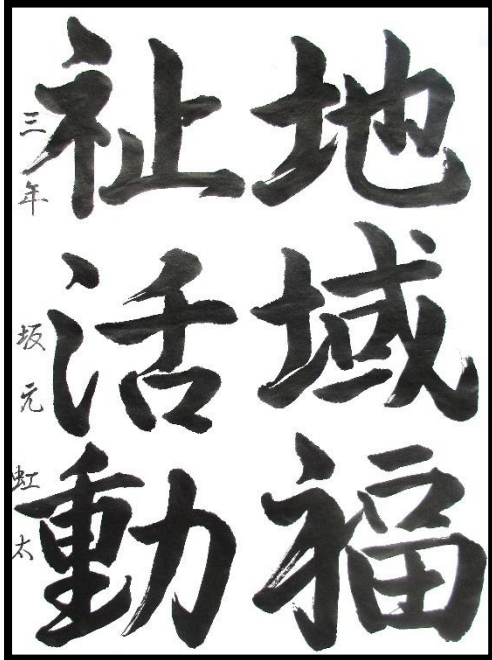 地域福
祉活動
三年 坂元 虹太